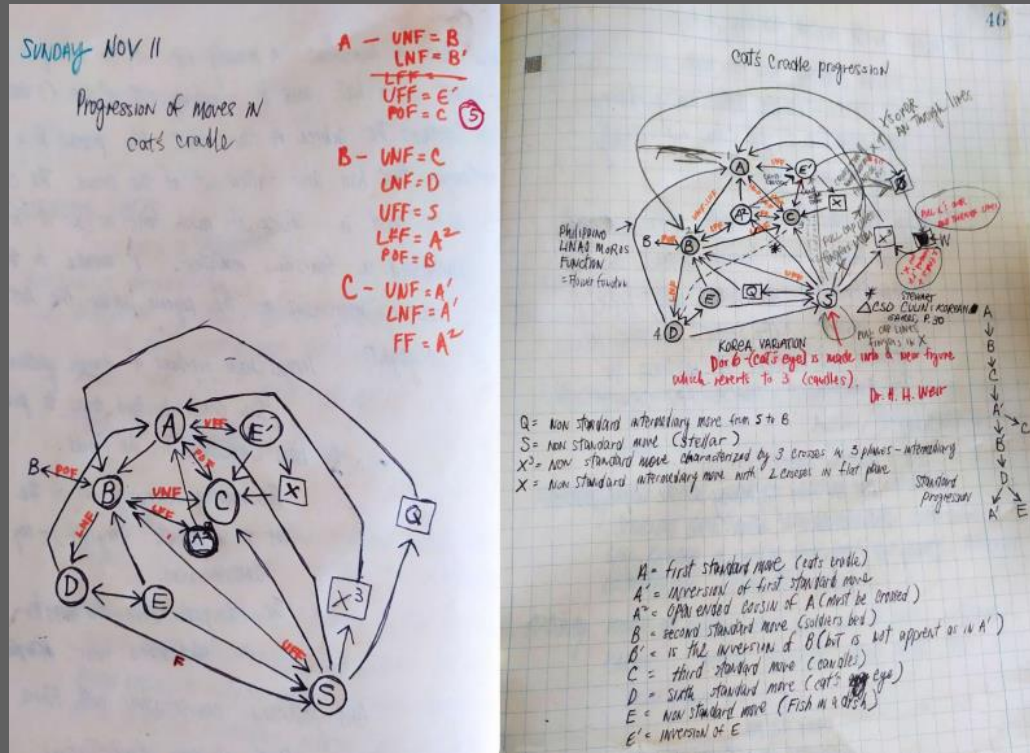 SUNDAY NOV 11
Progression of moves in
cat's cradle
A - UNF = B
LNF = B'
LFF =
UFF = E'
POF = C S
B - UNF = C
LNF = D
UFF = S
LFF = A²
POF = B
C - UNF = A'
LNF = A'
FF = A²
A
UFF
E'
B
POF
B
POF
UNF
C
X
LFF
A²
LNF
Q
D
E
X³
F
UFF
S
46
Cat's Cradle progression
X'S OVER
AND THROUGH LINES
A
UFF
E'
X
A²
C
PHILIPPINO
LINAO MOROS
FUNCTION
= Flower function
B
POF
B
X³
W
PULL C'S OVER
AND THROUGH LINES
UFF
LNF
E
Q
S
4 D
STEWART
CSD CULIN: KOREAN
GAMES, P. 30
KOREA VARIATION
PULL CAP LINES
fingers in X
D or 6 - (cat's eye) is made into a new figure
which reverts to 3 (candles).
Dr. H. H. Weir
Q = non standard intermediary move from S to B
S = non standard move (stellar)
X³ = non standard move characterized by 3 crosses in 3 planes - intermediary
X = non standard intermediary move with 2 crosses in flat plane
Standard
progression
A
B
C
A'
C
B'
D
A'
E
A = first standard move (cats cradle)
A' = inversion of first standard move
A" = open ended cousin of A (must be crossed)
B = second standard move (soldiers bed)
B' = is the inversion of B (but is not apparent as in A')
C = third standard move (candles)
D = sixth standard move (cat's eye)
E = non standard move (Fish in a dish)
E' = inversion of E